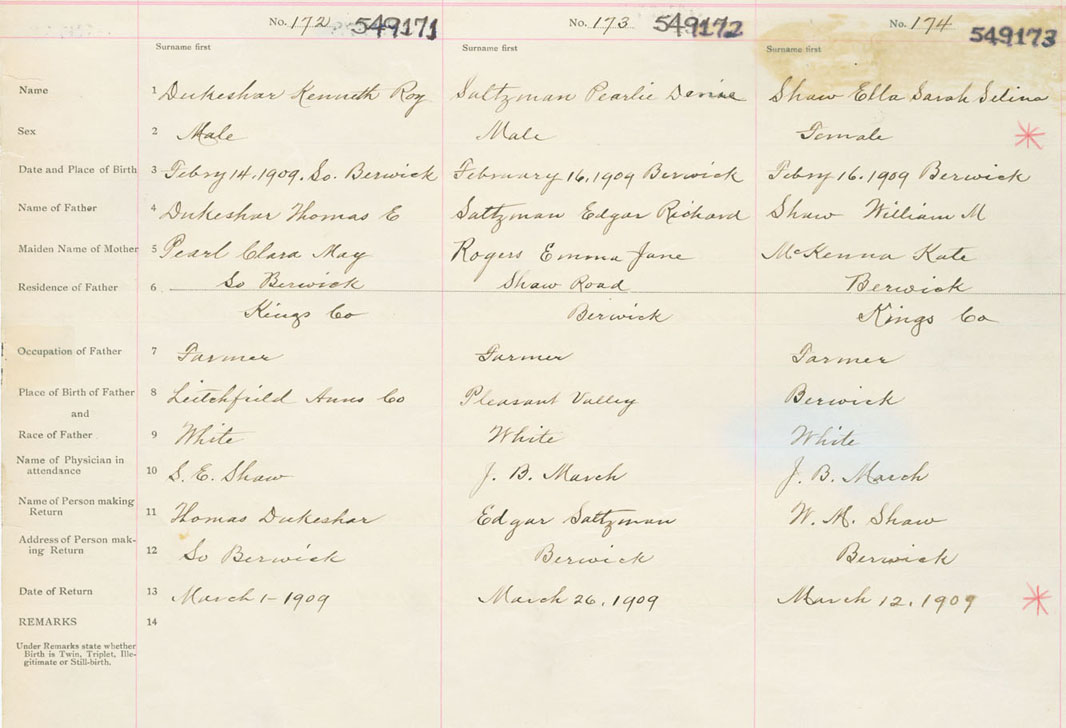 No. 172 549171 No. 173 549172 No. 174 549173
Surname first Surname first Surname first
Name 1 Dukeshar Kenneth Roy Saltzman Pearlie Denine Shaw Ella Sarah Selina
Sex 2 Male Male Female
Date and Place of Birth 3 Febry 14, 1909, So. Berwick February 16, 1909 Berwick Febry 16, 1909 Berwick
Name of Father 4 Dukeshar Thomas E Saltzman Edgar Richard Shaw William M
Maiden Name of Mother 5 Pearl Clara May Rogers Emma Jane McKenna Kate
Residence of Father 6 So Berwick Shaw Road Berwick
Kings Co Berwick Kings Co
Occupation of Father 7 Farmer Farmer Farmer
Place of Birth of Father 8 Leitchfield Anns Co Pleasant Valley Berwick
and
Race of Father 9 White White White
Name of Physician in
attendance 10 S. E. Shaw J. B. March J. B. March
Name of Person making
Return 11 Thomas Dukeshar Edgar Saltzman W. M. Shaw
Address of Person mak-
ing Return 12 So Berwick Berwick Berwick
Date of Return 13 March 1 - 1909 March 26, 1909 March 12, 1909
REMARKS 14
Under Remarks state whether
Birth is Twin, Triplet, Ille-
gitimate or Still-birth.